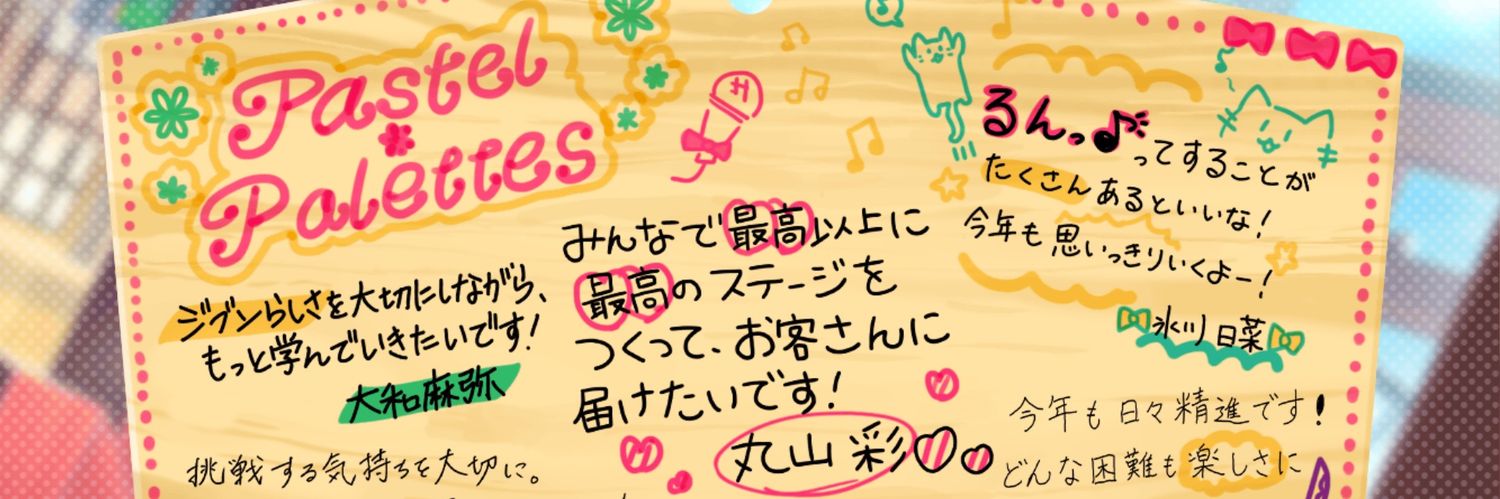 Pastel
Palettes
ジブンらしさを大切にしながら、
もっと学んでいきたいです!
大和麻弥
挑戦する気持ちを大切に。
みんなで最高以上に
最高のステージを
つくって、お客さんに
届けたいです!
丸山彩
るんっ♪ってすることが
たくさんあるといいな!
今年も思いっきりいくよー!
氷川日菜
今年も日々精進です!
どんな困難も楽しさに